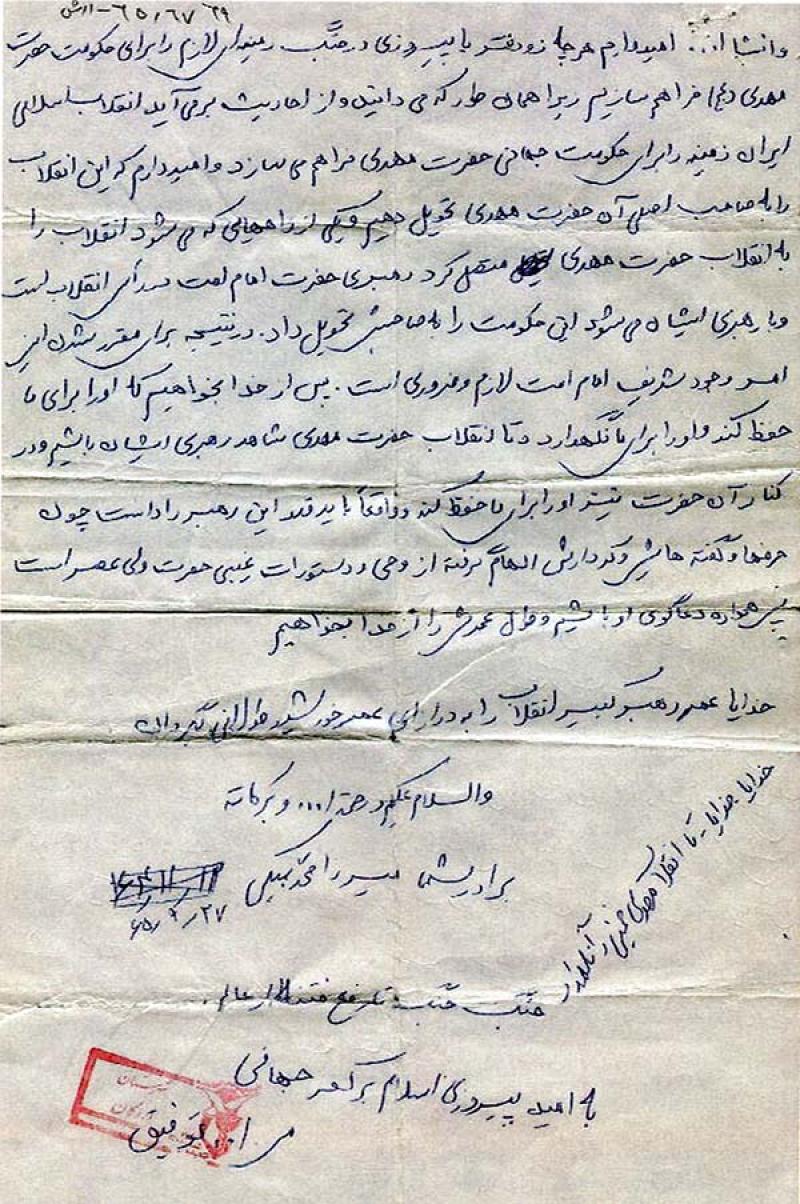 ۲۹ ۶۵/۶۷-ارتش
وانشا ا... امیدوارم هر چه زودتر با پیروزی در جنگ زمینه‌ای لازم را برای حکومت حضرت
مهدی (عج) فراهم سازیم زیرا همان طور که می دانید و از احادیث بر می آید انقلاب اسلامی
ایران زمینه را برای حکومت جهانی حضرت مهدی فراهم می سازد و امیدوارم که این انقلاب
را به صاحب اصلی آن حضرت مهدی تحویل دهیم و یکی از راههایی که می شود انقلاب را
به انقلاب حضرت مهدی متصل کرد رهبری حضرت امام امت در رأس انقلاب است
و با رهبری ایشان می شود این حکومت را به صاحبش تحویل داد. در نتیجه برای مقرر شدن این
امر وجود شریف امام امت لازم و ضروری است. پس از خدا بخواهیم که او را برای ما
حفظ کند و او را برای ما نگهدارد و تا انقلاب حضرت مهدی شاهد رهبری ایشان باشیم و در
کنار آن حضرت نیز او را برای ما حفظ کند و واقعاً باید قدر این رهبر را داست چون
حرفها و گفته هایش و کردارش الهام گرفته از وحی و دستورات غیبی حضرت ولی عصر است
پس همواره دعاگوی او باشیم و طول عمرش را از خدا بخواهیم
خدایا عمر رهبر کبیر انقلاب را به درازای عمر خورشید طولانی بگردان
والسلام علیکم و رحمة ا... و برکاته
برادر شما میرزا محمد
۶۵/۹/۲۷
خدایا خدایا - تا انقلاب مهدی خمینی را نگهدار
جنگ جنگ تا رفع فتنه از عالم.
به امید پیروزی اسلام بر کفر جهانی
من ا... توفیق